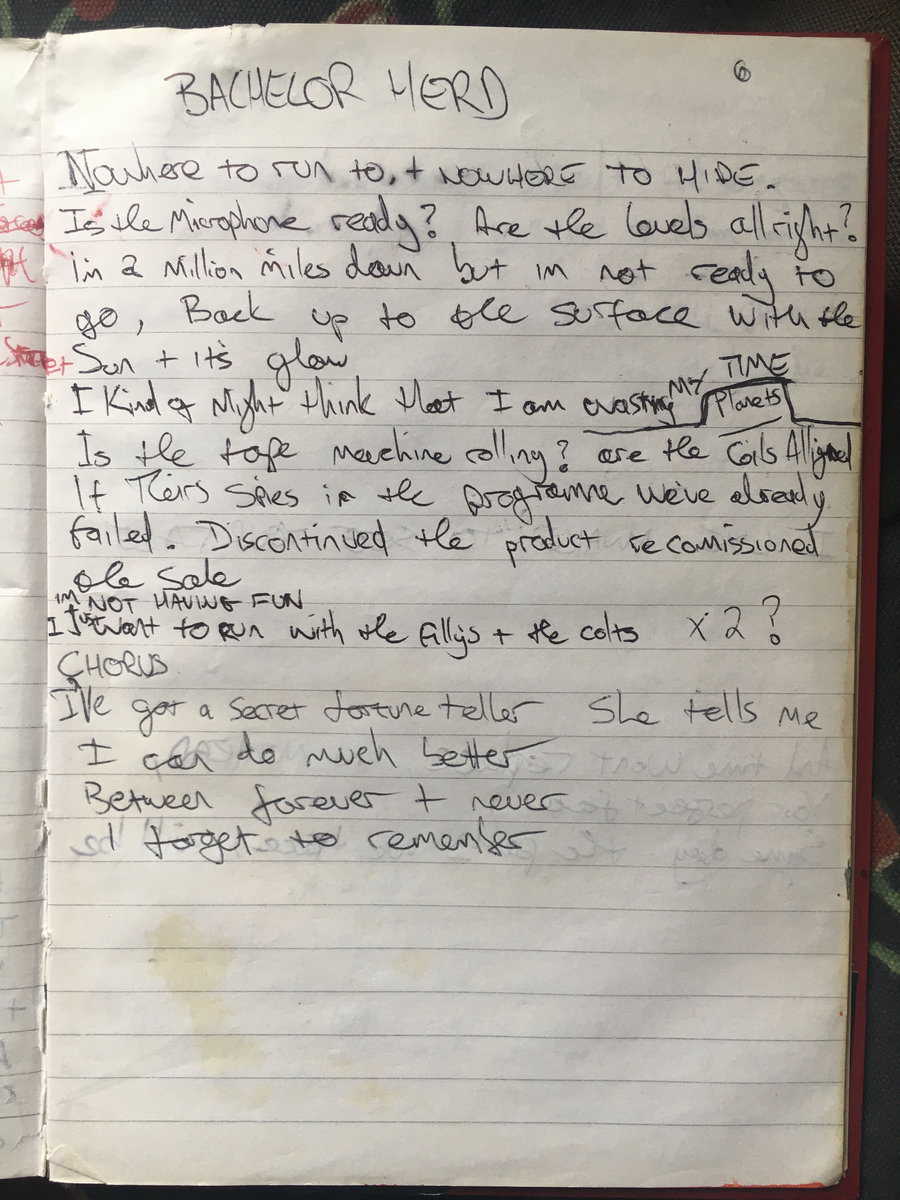 BACHELOR HERD
6
Nowhere to run to, + NOWHERE TO HIDE.
Is the Microphone ready? Are the levels allright?
im a Million miles down but im not ready to
go, Back up to the surface with the
Sun + it's glow
I Kind of Might think that I am wasting MY TIME
Planets
Is the tape machine rolling? are the Coils Alligned
If Theirs Spies in the programme We've already
failed. Discontinued the product recomissioned
the Sale
im NOT HAVING FUN
I Just Want to Run with the fillys + the colts x 2?
CHORUS
I've got a secret fortune teller She tells me
I can do much better
Between forever + never
I forget to remember